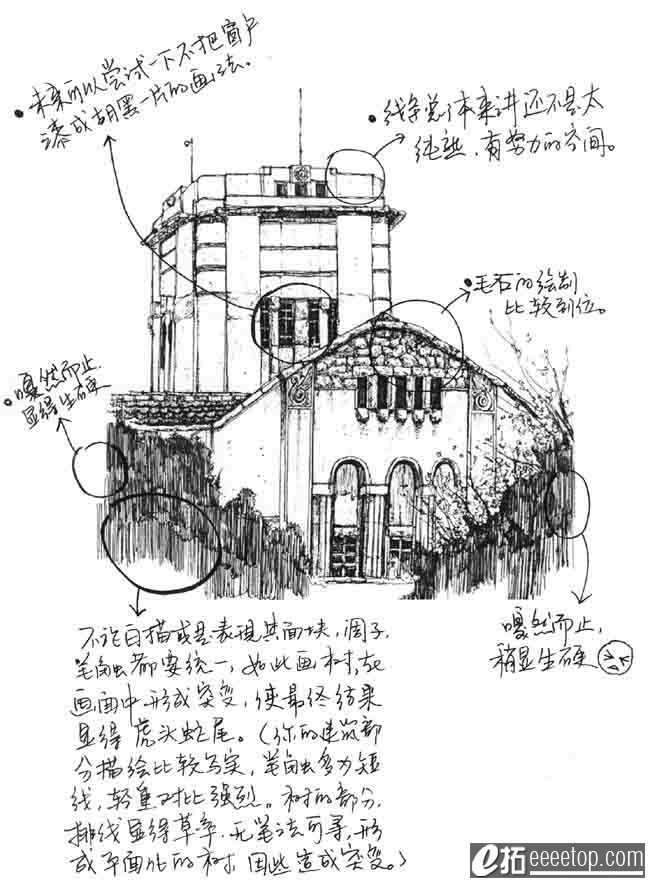 未来可以尝试一下不把窗户
漆成胡黑一片的画法。
线条总体来讲还不是太
纯熟,有努力的空间。
毛石的绘制
比较到位。
嘎然而止,
显得生硬
嘎然而止,
稍显生硬
不论白描或是表现其面块,调子,
笔触都要统一,如此画树,在
画面中形成突变,使最终结果
显得虎头蛇尾。(你的建筑部
分描绘比较写实,笔触多为短
线,轻重对比强烈。树的部分,
排线显得草率,无笔法可寻,形
成平面化的树,因此造成突变。)
e拓 eeeetop.com